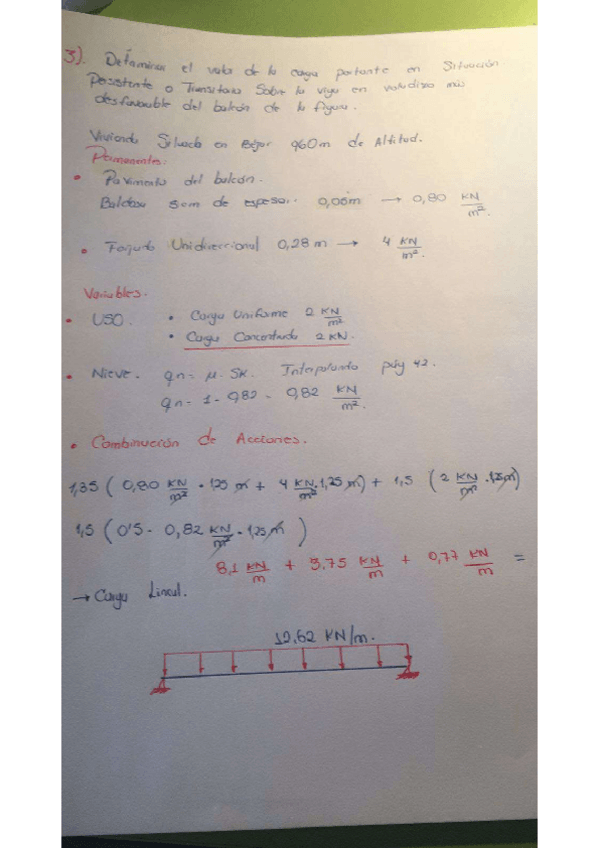 3). Determinar el valor de la carga portante en Situación
Persistente o Transitoria Sobre la viga en voladizo más
desfavorable del balcón de la figura.
Vivienda Situada en Béjar 960m de Altitud.
Permanentes:
• Pavimento del balcón.
Baldosa 5cm de espesor. 0,05m → 0,80 KN/m².
• Forjado Unidireccional 0,28 m → 4 KN/m².
Variables.
• USO. • Carga Uniforme 2 KN/m²
• Carga Concentrada 2 KN.
• Nieve. qn = μ · SK. Interpolando pág 42.
qn = 1 · 0,82 = 0,82 KN/m².
• Combinación de Acciones.
1,35 ( 0,80 KN/m² · 1,25 m + 4 KN/m² · 1,25 m ) + 1,5 ( 2 KN/m² · 1,25 m )
1,5 ( 0'5 · 0,82 KN/m² · 1,25 m )
8,1 KN/m + 3,75 KN/m + 0,77 KN/m =
→ Carga Lineal.
12,62 KN/m.